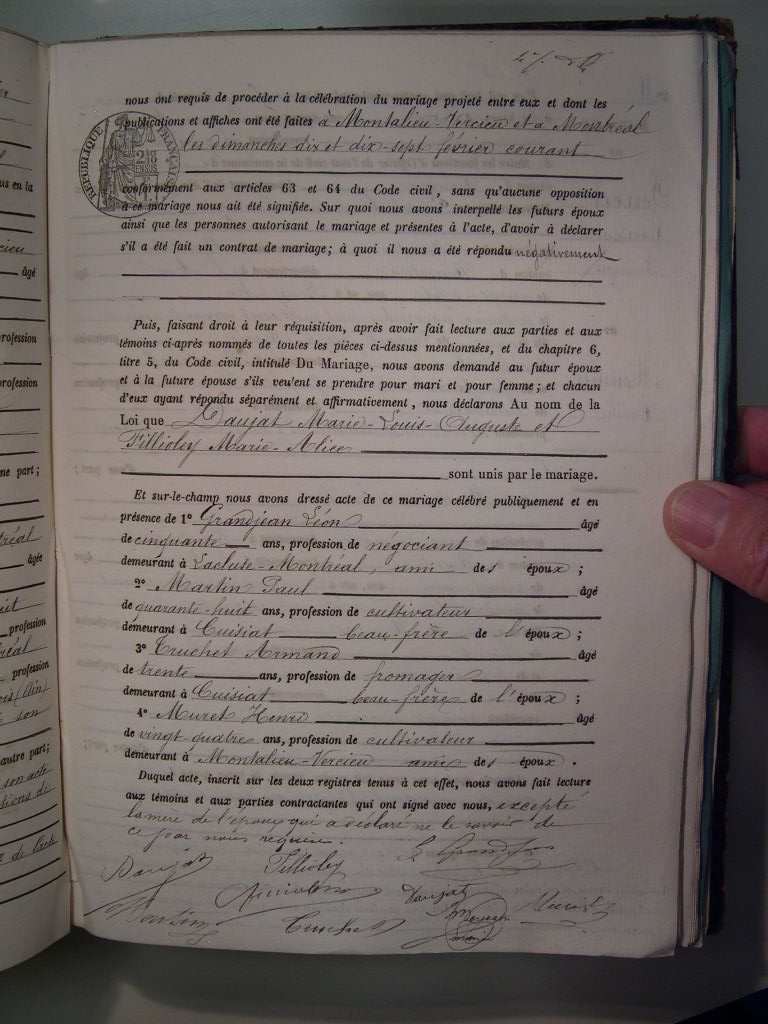 nous ont requis de procéder à la célébration du mariage projeté entre eux et dont les
publications et affiches ont été faites à Montalieu-Vercieu et à Montréal
les dimanches dix et dix-sept février courant
RÉPUBLIQUE FRANÇAISE
conformément aux articles 63 et 64 du Code civil, sans qu'aucune opposition
à ce mariage nous ait été signifiée. Sur quoi nous avons interpellé les futurs époux
ainsi que les personnes autorisant le mariage et présentes à l'acte, d'avoir à déclarer
s'il a été fait un contrat de mariage; à quoi il nous a été répondu négativement
Puis, faisant droit à leur réquisition, après avoir fait lecture aux parties et aux
témoins ci-après nommés de toutes les pièces ci-dessus mentionnées, et du chapitre 6,
titre 5, du Code civil, intitulé Du Mariage, nous avons demandé au futur époux
et à la future épouse s'ils veulent se prendre pour mari et pour femme; et chacun
d'eux ayant répondu séparément et affirmativement, nous déclarons Au nom de la
Loi que Daujat Marie-Louis-Auguste et
Filliolex Marie-Alice
sont unis par le mariage.
Et sur-le-champ nous avons dressé acte de ce mariage célébré publiquement et en
présence de 1° Grandjean Léon âgé
de cinquante ans, profession de négociant
demeurant à Lacluse-Montréal, ami des époux;
2° Martin Paul âgé
de quarante-huit ans, profession de cultivateur
demeurant à Cuisiat beau-frère de l'époux;
3° Truchet Armand âgé
de trente ans, profession de fromager
demeurant à Cuisiat beau-frère de l'époux;
4° Muret Henri âgé
de vingt-quatre ans, profession de cultivateur
demeurant à Montalieu-Vercieu ami des époux.
Duquel acte, inscrit sur les deux registres tenus à cet effet, nous avons fait lecture
aux témoins et aux parties contractantes qui ont signé avec nous, excepté
la mère de l'époux qui a déclaré ne le savoir de
ce par nous requise.
Daujat Filliolex L Grandjean
Daujat Muret
Martin Truchet